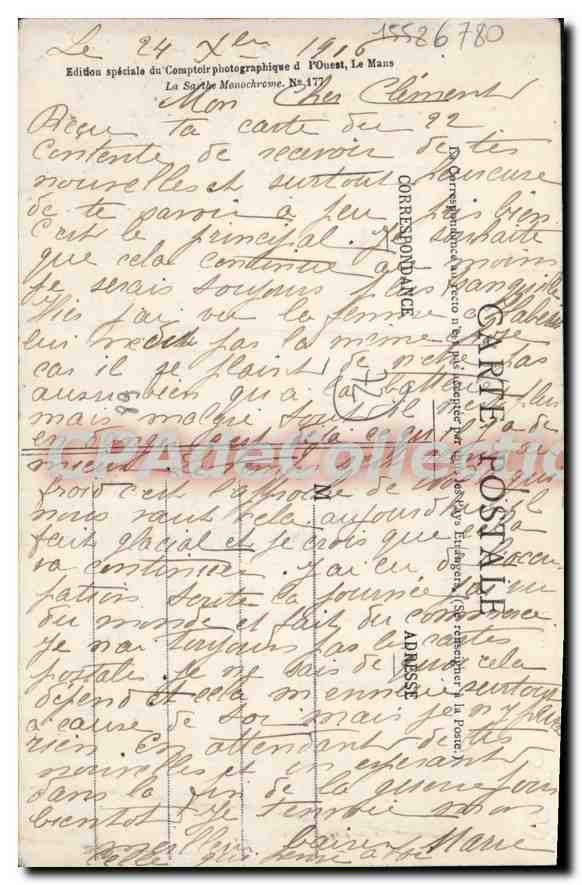 Le 24 Xbre 1916
15526780
Edition spéciale du Comptoir photographique d l'Ouest, Le Mans
La Sarthe Monochrome. No. 177
Mon Cher Clément
Reçu ta carte du 22
Contente de recevoir de tes
nouvelles et surtout heureuse
de te savoir à peu près bien
C'est le principal. Je souhaite
que cela continue au moins
je serais toujours plus tranquille
Hier j'ai vu la femme
lui pas la même
cas il se plaint de n'être pas
aussi bien qu'a la batterie
mais malgré tout il
en
mieux
froid c'est l'approche de Noël qui
nous vaut cela aujourd'hui il
fait glacial et je crois que cela
va continuer. J'ai eu de l'occu
pations toute la journée j'ai eu
du monde et fait du commerce
Je n'ai toujours pas les cartes
postales je ne sais de quoi cela
dépend et cela m'ennuie surtout
a cause de toi mais je n'y puis
rien. En attendant de tes
nouvelles et en espérant
dans la fin de la guerre pour
bientôt Je t'envoie mon
meilleur baiser Marie
Celle qui pense a toi
CARTE POSTALE
La Correspondance au recto n'est pas acceptée par tous les Pays Etrangers. (Se renseigner à la Poste.)
CORRESPONDANCE
ADRESSE
M
72
CPADeCollection